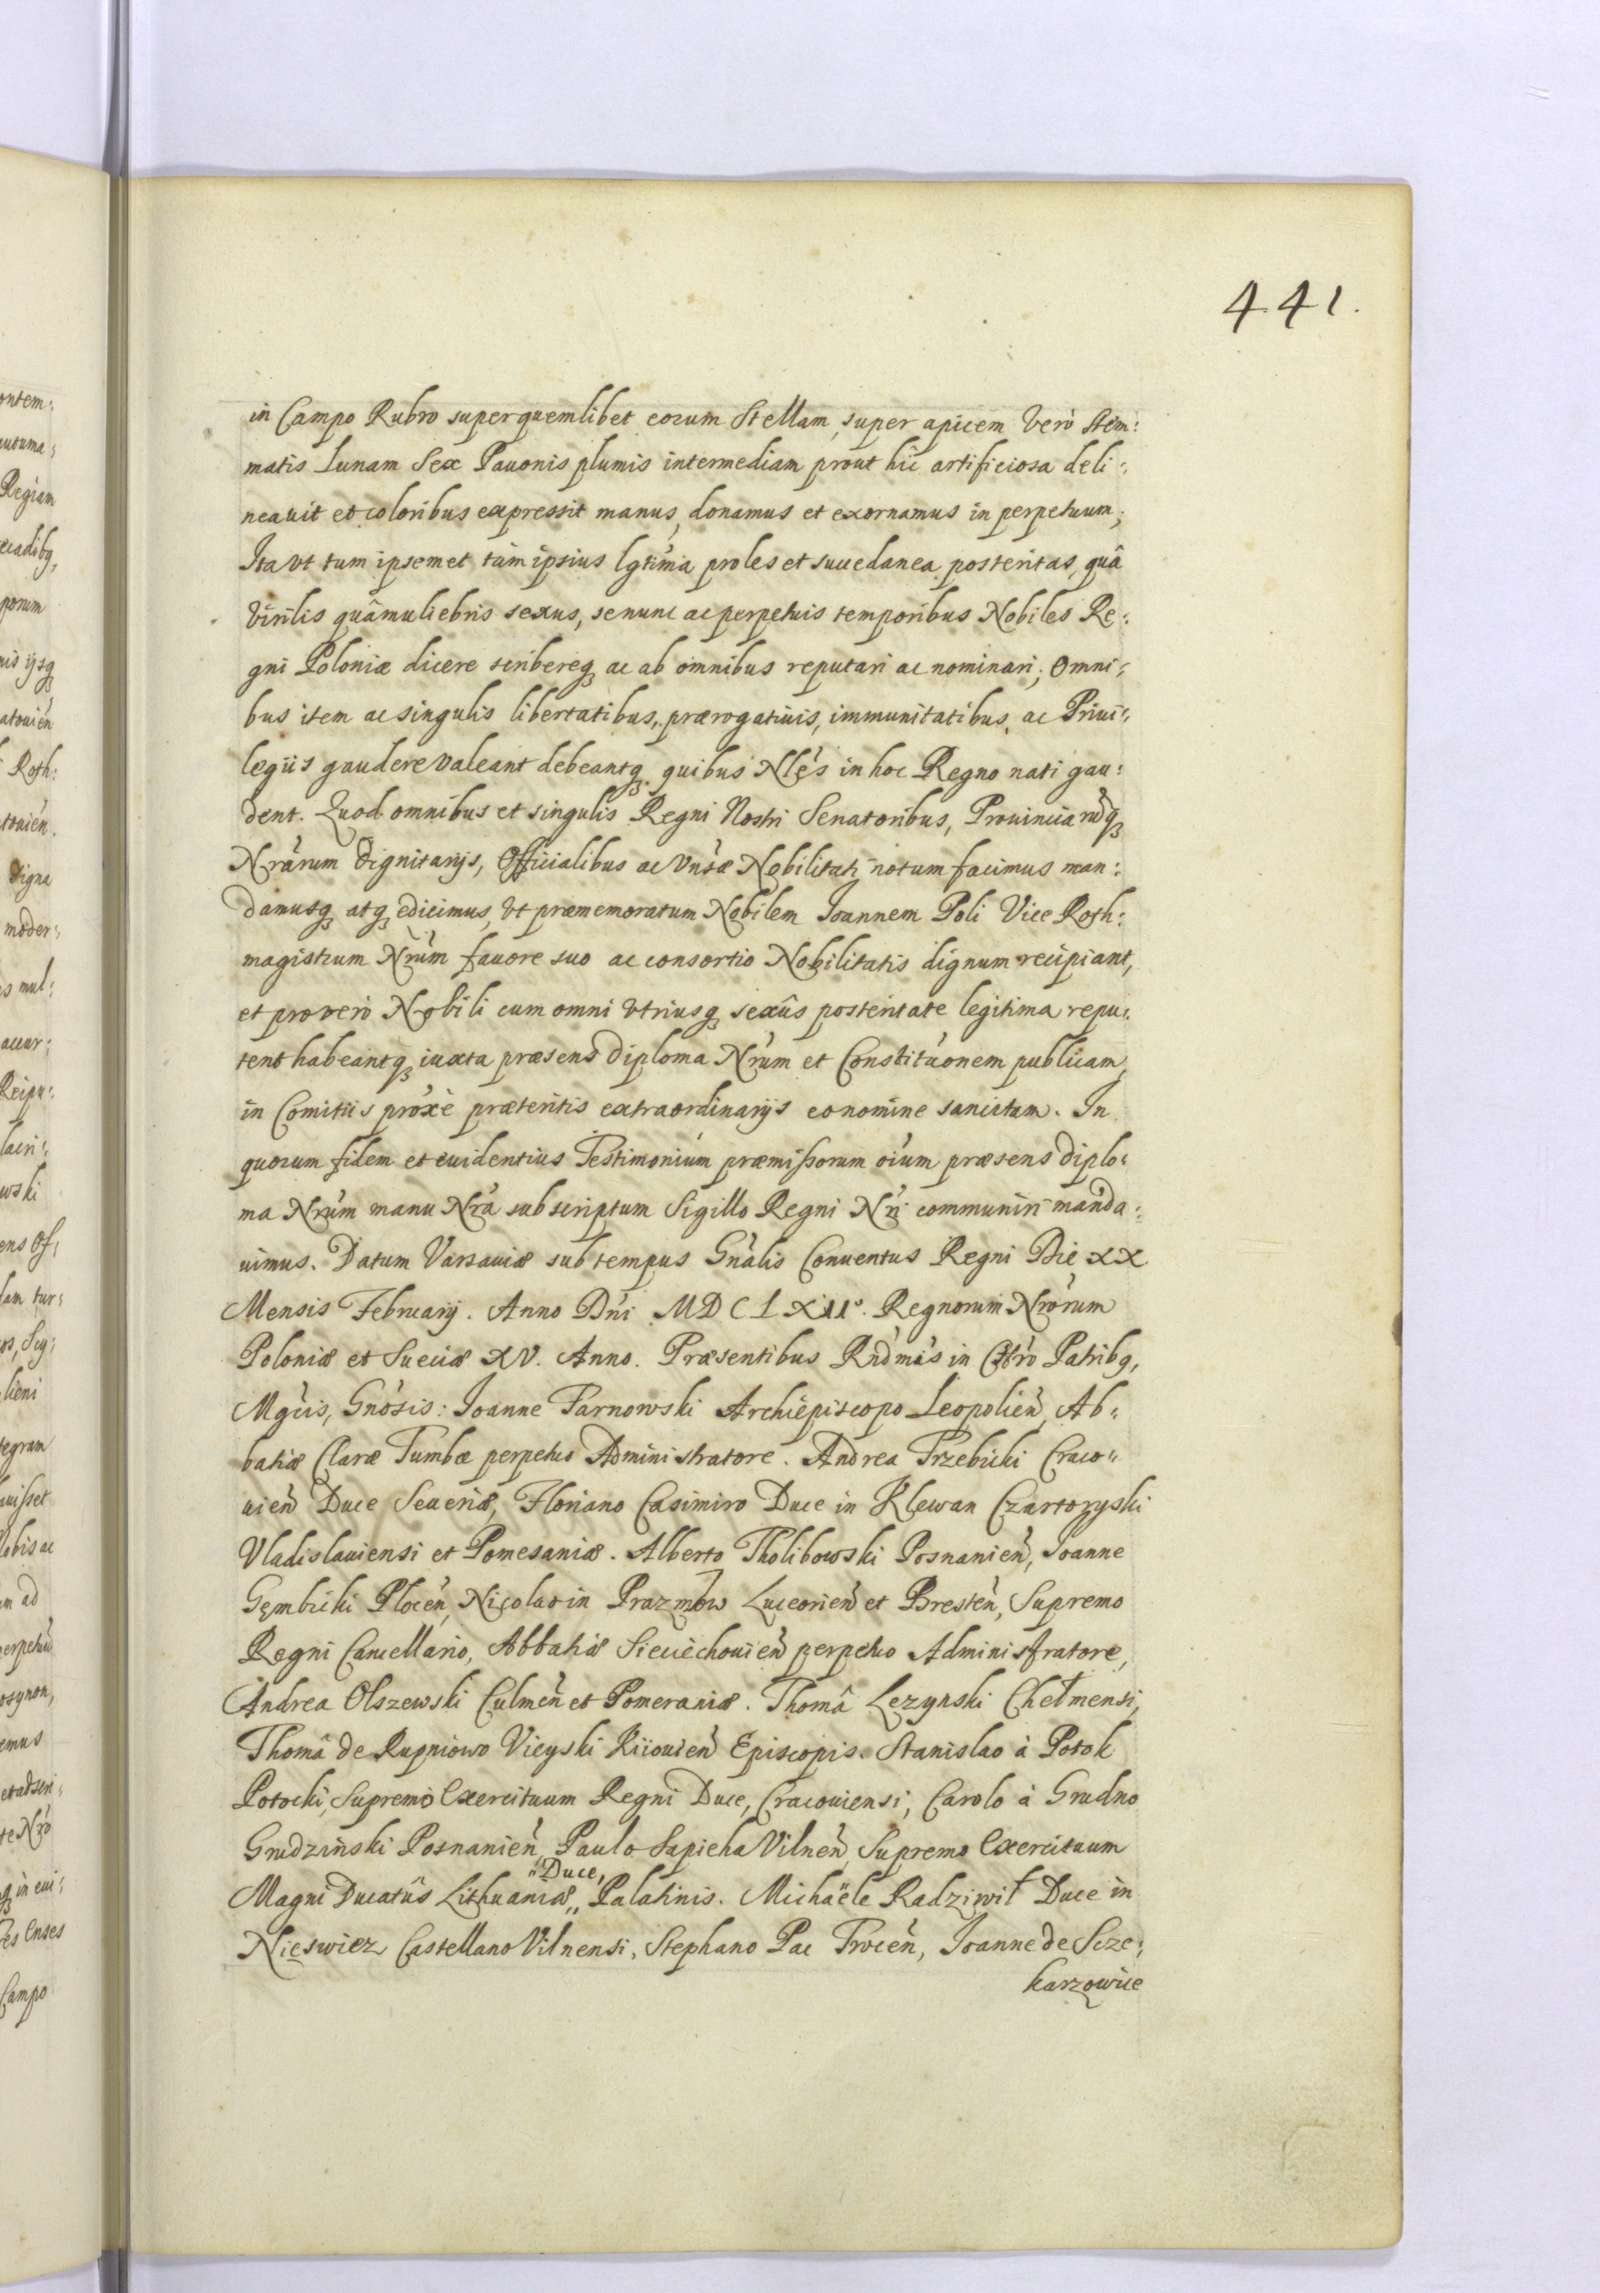 441.
in Campo Rubro super quemlibet eorum Stellam, super apicem verò Stem:
matis Lunam Sex Pavonis plumis intermediam prout hîc artificiosa deli:
neauit et coloribus expressit manus, donamus et exornamus in perpetuum;
Ita vt tum ipsemet tùm ipsius lgtima proles et succedanea posteritas, quâ
virilis quâ muliebris sexus, se nunc ac perpetuis temporibus Nobiles Re:
gni Poloniæ dicere scribereq₃ ac ab omnibus reputari ac nominari; Omni:
bus item ac singulis libertatibus, prærogatiuis, immunitatibus, ac Priui:
legiis gaudere valeant debeantq₃ quibus Nlẽs in hoc Regno nati gau:
dent. Quod omnibus et singulis Regni Nostri Senatoribus, Prouinciarũq₃
Nrarum Dignitarijs, Officialibus ac Vnsæ Nobilitati notum facimus man:
damusq₃ atq₃ edicimus, vt præmemoratum Nobilem Joannem Poli Vice Roth:
magistrum Nrũm favore suo ac consortio Nobilitatis dignum recipiant,
et pro verò Nobili cum omni vtriusq₃ sexûs posteritate legitima repu:
tent habeantq₃ iuxta præsens Diploma Nrũm et Constituõnem publicam,
in Comitiis proxè præteritis extraordinarijs eo nomine sancitam. In
quorum fidem et euidentius Testimonium præmissorum oĩum præsens Diplo:
ma Nrũm manu Nrã subscriptum Sigillo Regni Nri communiri manda:
uimus. Datum Varsauiæ sub tempus Gnãlis Conuentus Regni Die XX
Mensis Februarij. Anno Dñi MDCLXII°. Regnorum Nrõrum
Poloniæ et Sueciæ XV. Anno. Præsentibus Rndmis in Chro Patribq,
Mgcis, Gnosis: Joanne Tarnowski Archiepiscopo Leopolien̄, Ab:
batiæ Claræ Tumbæ perpetuo Administratore. Andrea Trzebicki Craco:
uien̄ Duce Seueriæ, Floriano Casimiro Duce in Klewan Czartoryski
Vladislauiensi et Pomesaniæ. Alberto Tholibowski Posnanien̄, Joanne
Gęmbicki Plocen̄, Nicolao in Prazmow Luceorien̄ et Bresten̄, Supremo
Regni Cancellario, Abbatiæ Sieciechouien̄ perpetuo Administratore,
Andrea Olszewski Culmen̄ et Pomeraniæ. Thomâ Lezynski Chełmensi,
Thomâ de Rupniowo Vieyski Kiiouien̄ Episcopis. Stanislao à Potok
Potocki, Supremo Exercituum Regni Duce, Cracouiensi, Carolo à Grudno
Grudziński Posnanien̄, Paulo Sapieha Vilnen̄, Supremo Exercituum
"Duce,
Magni Ducatûs Lithuaniæ,, Palatinis. Michaële Radziwił Duce in
Nieswiez Castellano Vilnensi, Stephano Pac Trocen̄, Joanne de Scze:
karzowice